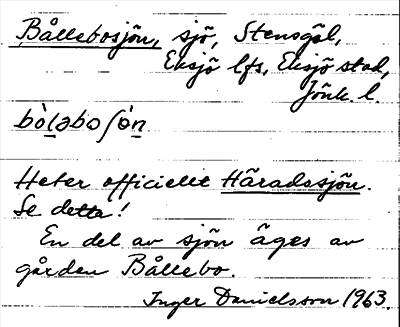 Bållebosjön, sjö, Stensgöl,
Eksjö lfs, Eksjö stad,
Jönk. l.
bò̀ləboʃö̀n
Heter officiellt Häradssjön.
Se detta!
En del av sjön äges av
gården Bållebo.
Inger Danielsson 1963.